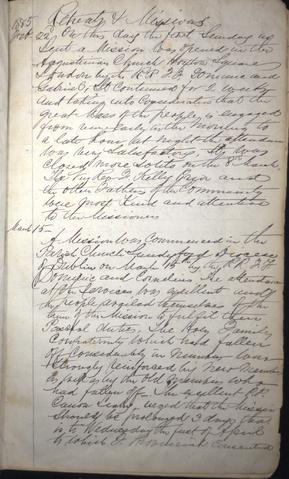 Retreats & Missions
1885
Feb 22. On this day the first Sunday of
Lent a Mission was opened in the
Augustinian Church Hoxton Square
London by the RR FF Dominic and
Gabriel, It Continued for 2 weeks
and taking into Consideration that the
great mass of the people is engaged
from early in the Morning to
a late hour at night the attendance
was very Satisfactory. It was
Closed on the 8th March
The Prior and
the other Fathers of the Community
were most Kind and attentive
to the Missioners
March 15 —
A Mission was Commenced in the
Parish Church Diocese
of Dublin on March 15th by the RR FF
Dominic and Cornelius. The attendance
at the Services was excellent and
the people availed themselves of the
time of the Mission to fulfil their
Paschal duties. The Holy Family
Confraternity which had fallen
off Considerably in number was
strongly reinforced by New Members
as well as by the Old Members who
had fallen off. The excellent P.P.
Canon urged that the Mission
should be prolonged 3 days that
is, to Wednesday the 1st of April
to which F. Provincial Consented